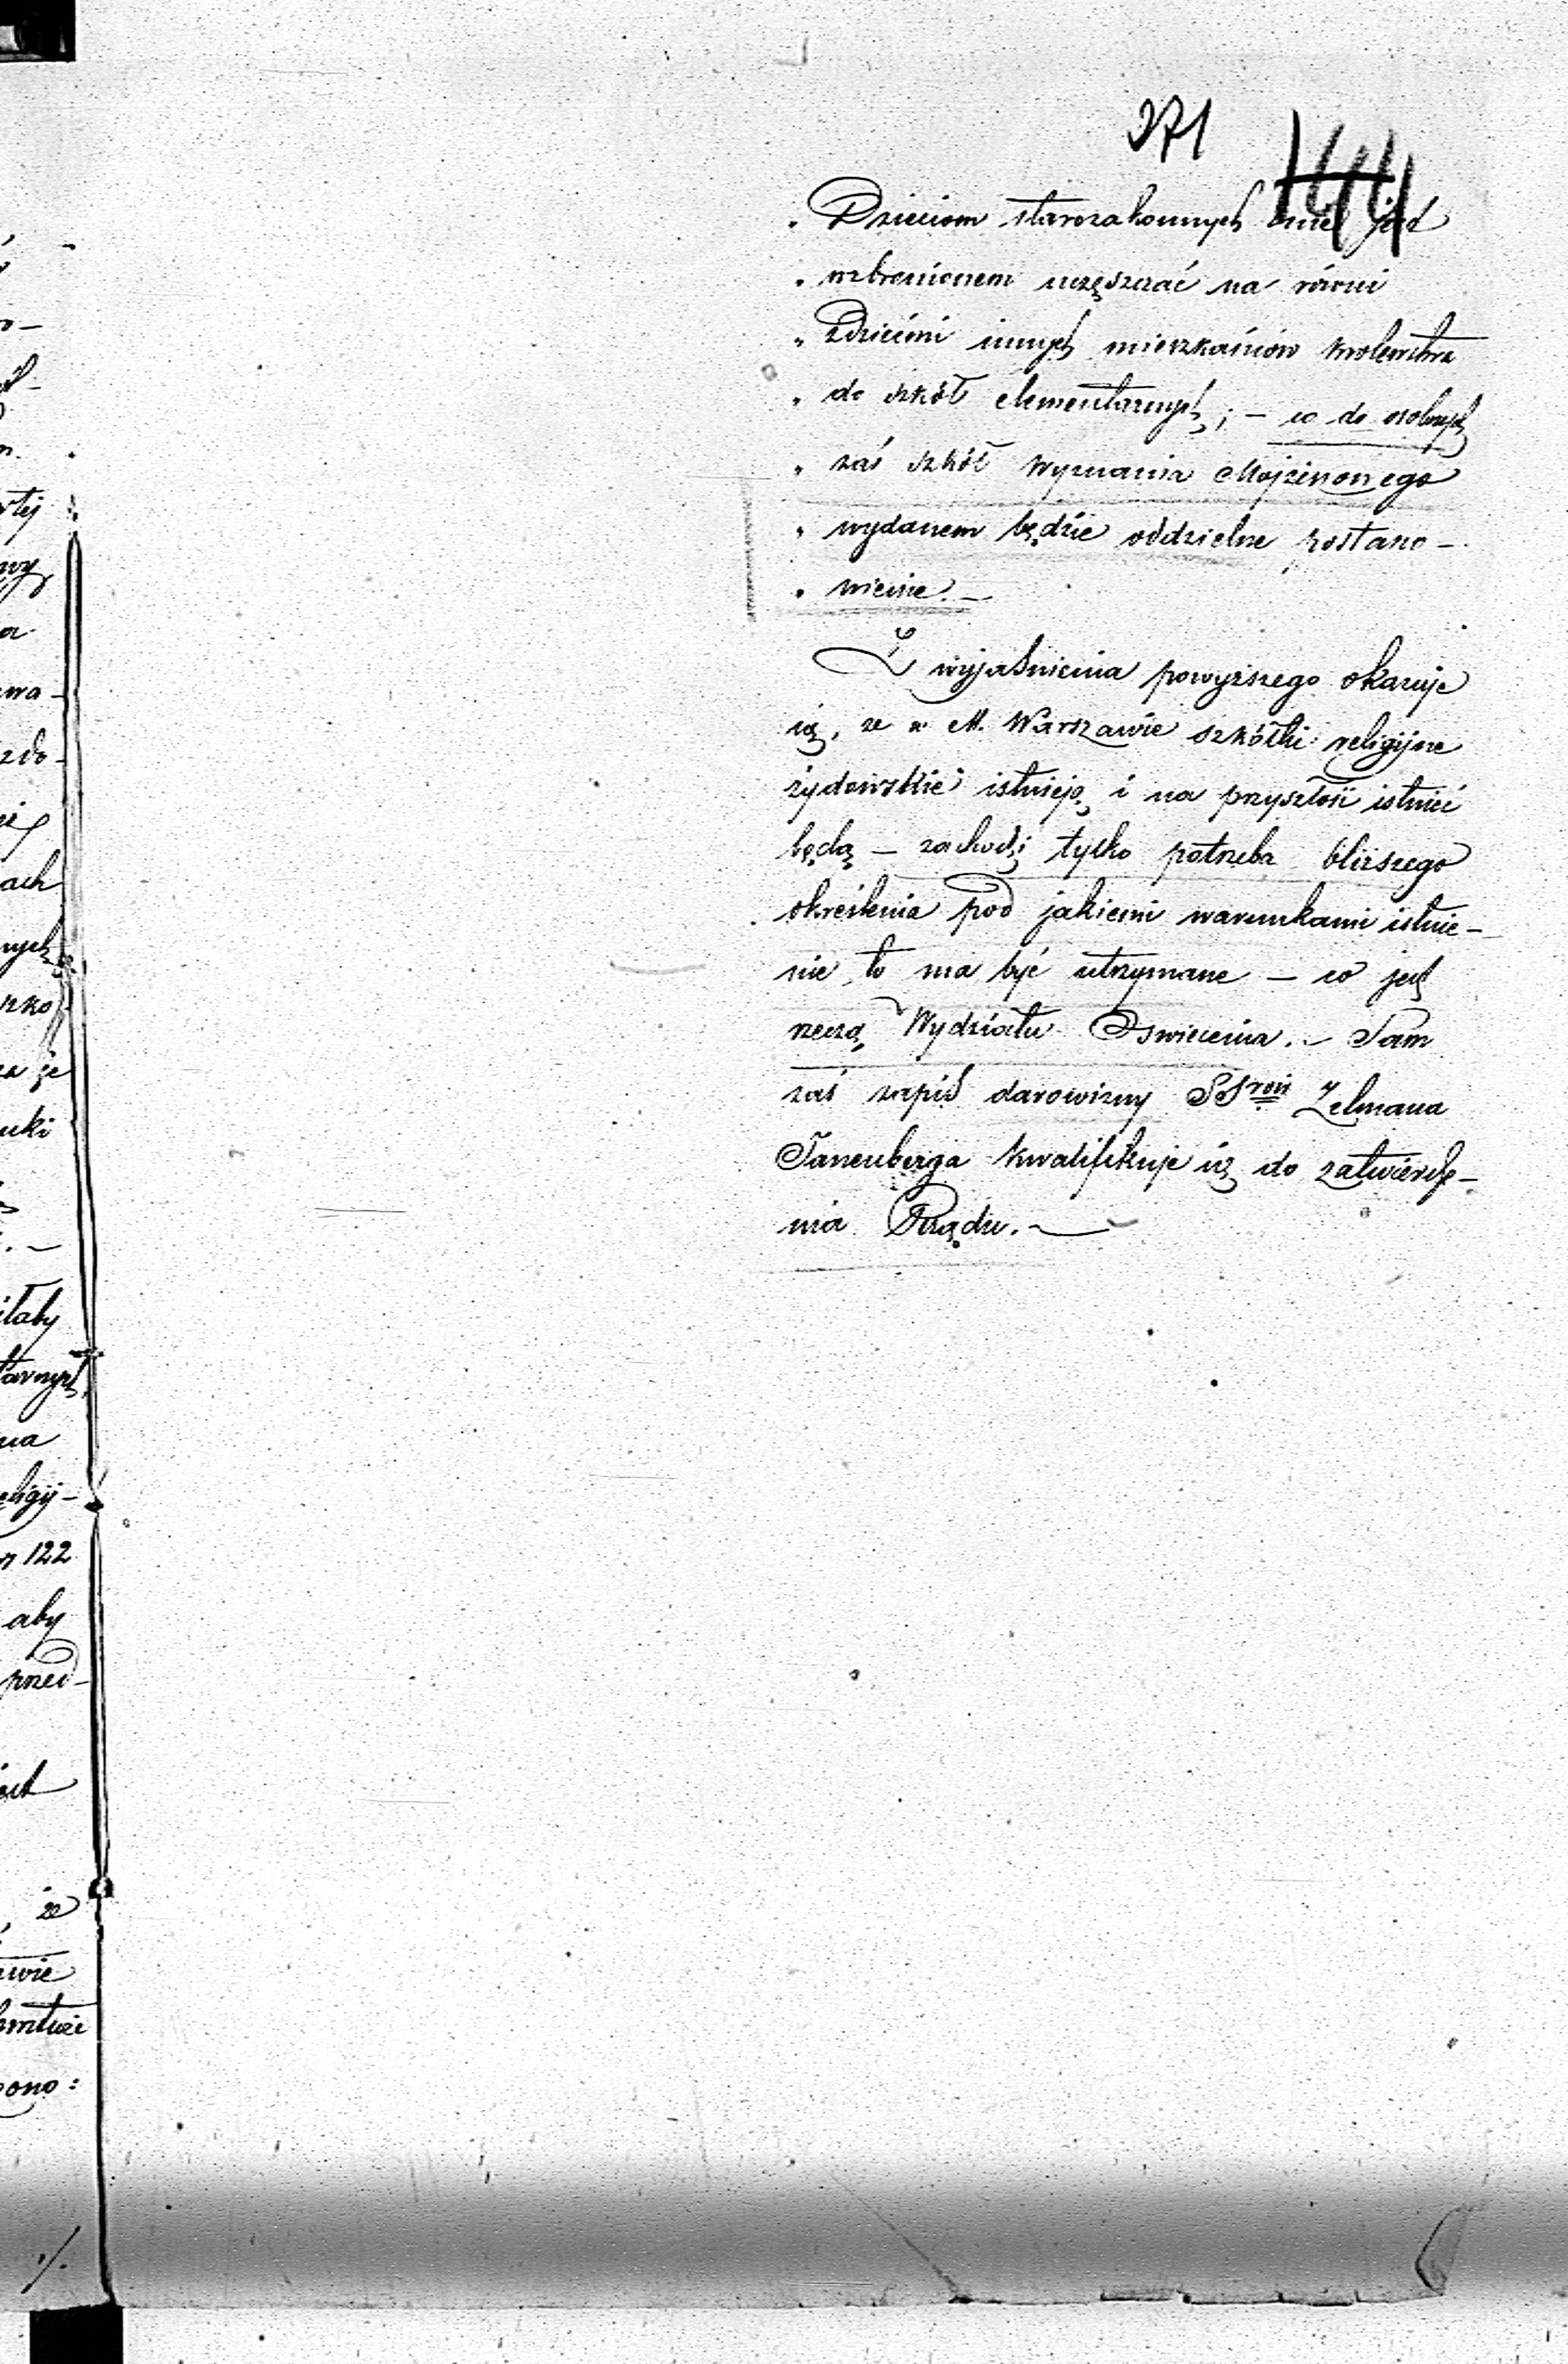 371
„ Dzieciom starozakonnych nie jest
„ wzbronionem uczęszczać na równi
„ zdziećmi innych mieszkańców Królewstwa
„ do szkół elementarnych; – co do osobnych
„ zaś szkół wyznania Mojżeszowego
„ wydanem będzie oddzielne postano-
„ wienie. –
Z wyjaśnienia powyższego okazuje
się, że w M. Warszawie szkółki religijne
żydowskie istnieją i na przyszłość istnieć
będą – zachodzi tylko potrzeba bliższego
określenia pod jakiemi warunkami istnie-
nie to ma być utrzymane – co jest
rzeczą Wydziału Oświecenia. – Sam
zaś zapis darowizny SSroń Zelmana
Tanenberga kwalifikuje się do zatwierdze-
nia Rządu. –
wy
a
ach
nych
uki
aby
na
religij-
122
aby
że
ono: